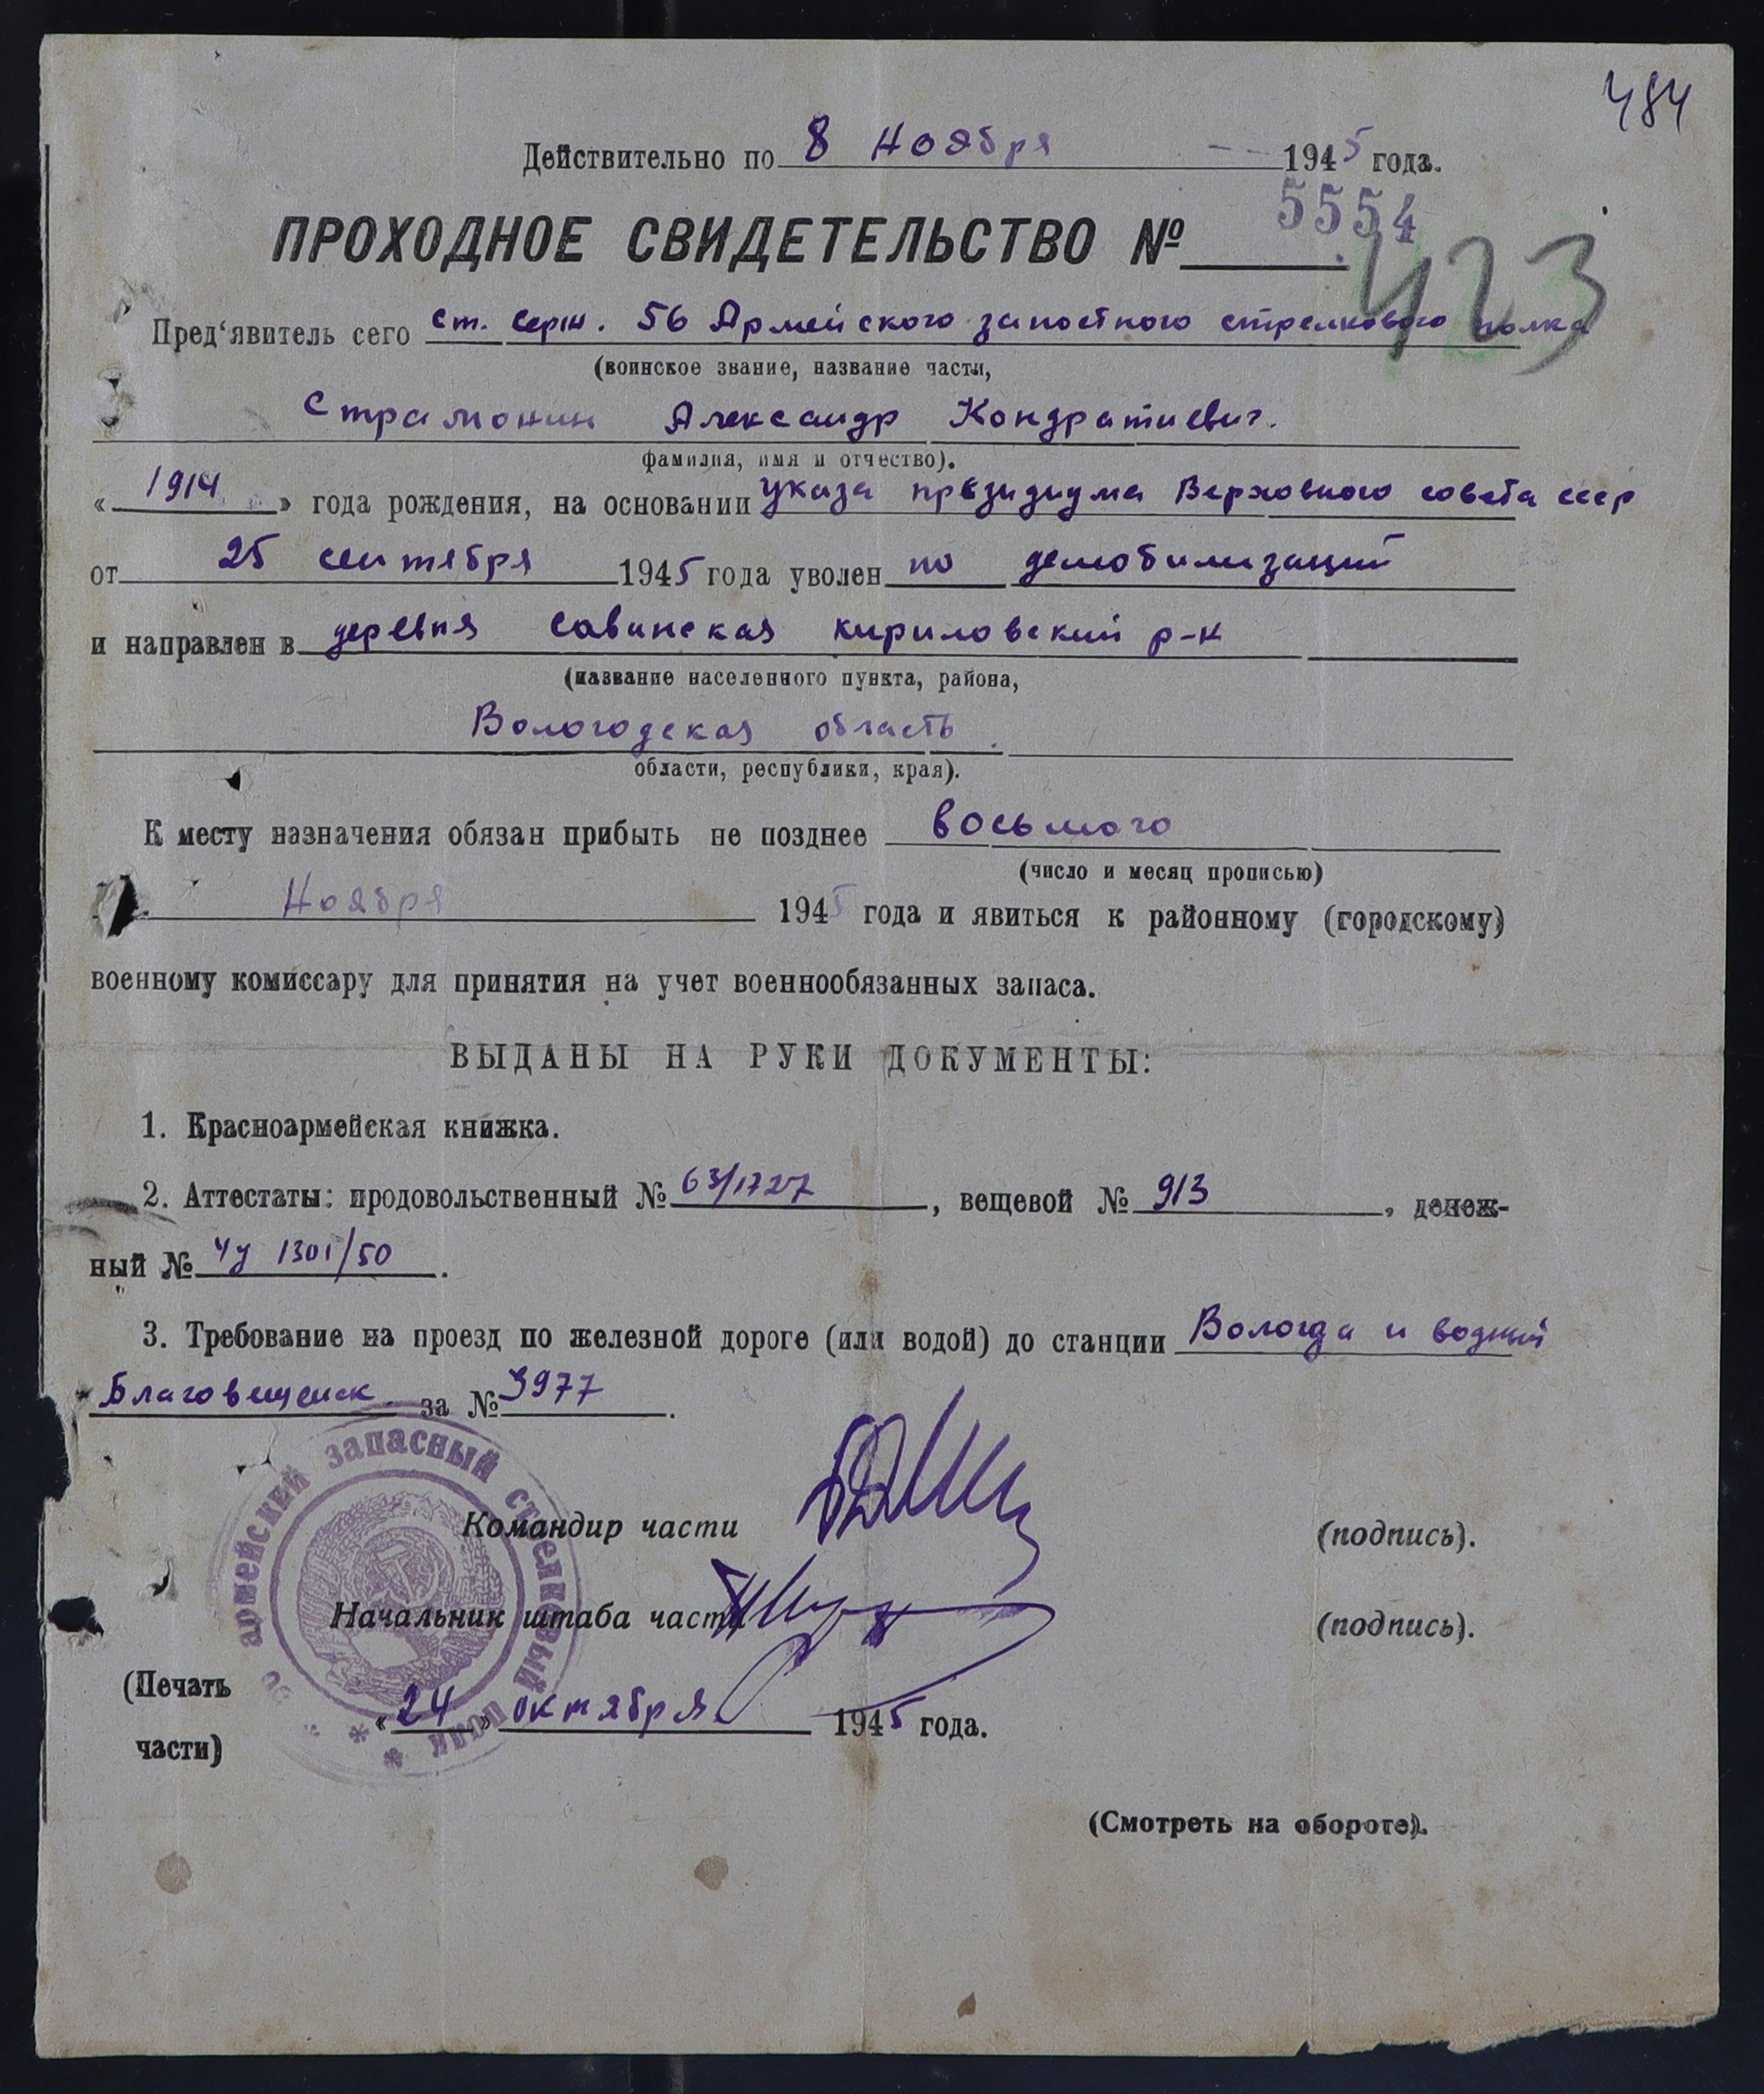 484
Действительно по 8 Ноября 1945 года.
5554
ПРОХОДНОЕ СВИДЕТЕЛЬСТВО №
423
Пред'явитель сего ст. серж. 56 Армейского запостного стрелкового полка
(воинское звание, название части,
Страмонин Александр Кондратиевич.
фамилия, имя и отчество).
« 1914 » года рождения, на основании указа президиума Верховного совета ссср
от 25 сентября 1945 года уволен по демобилизаций
и направлен в деревня Савинская кириловский р-н
(название населенного пункта, района,
Вологодская область.
области, республики, края).
К месту назначения обязан прибыть не позднее восьмого
(число и месяц прописью)
Ноября 1945 года и явиться к районному (городскому)
военному комиссару для принятия на учет военнообязанных запаса.
ВЫДАНЫ НА РУКИ ДОКУМЕНТЫ:
1. Красноармейская книжка.
2. Аттестаты: продовольственный № 63/1727, вещевой № 913, денеж-
ный № 1301/50.
3. Требование на проезд по железной дороге (или водой) до станции Вологда и водный
Благовещенск за № 3977.
армейский запасный стрелковый полк
Командир части (подпись).
Начальник штаба части (подпись).
(Печать
части)
« 24 » октября 1945 года.
(Смотреть на обороте).